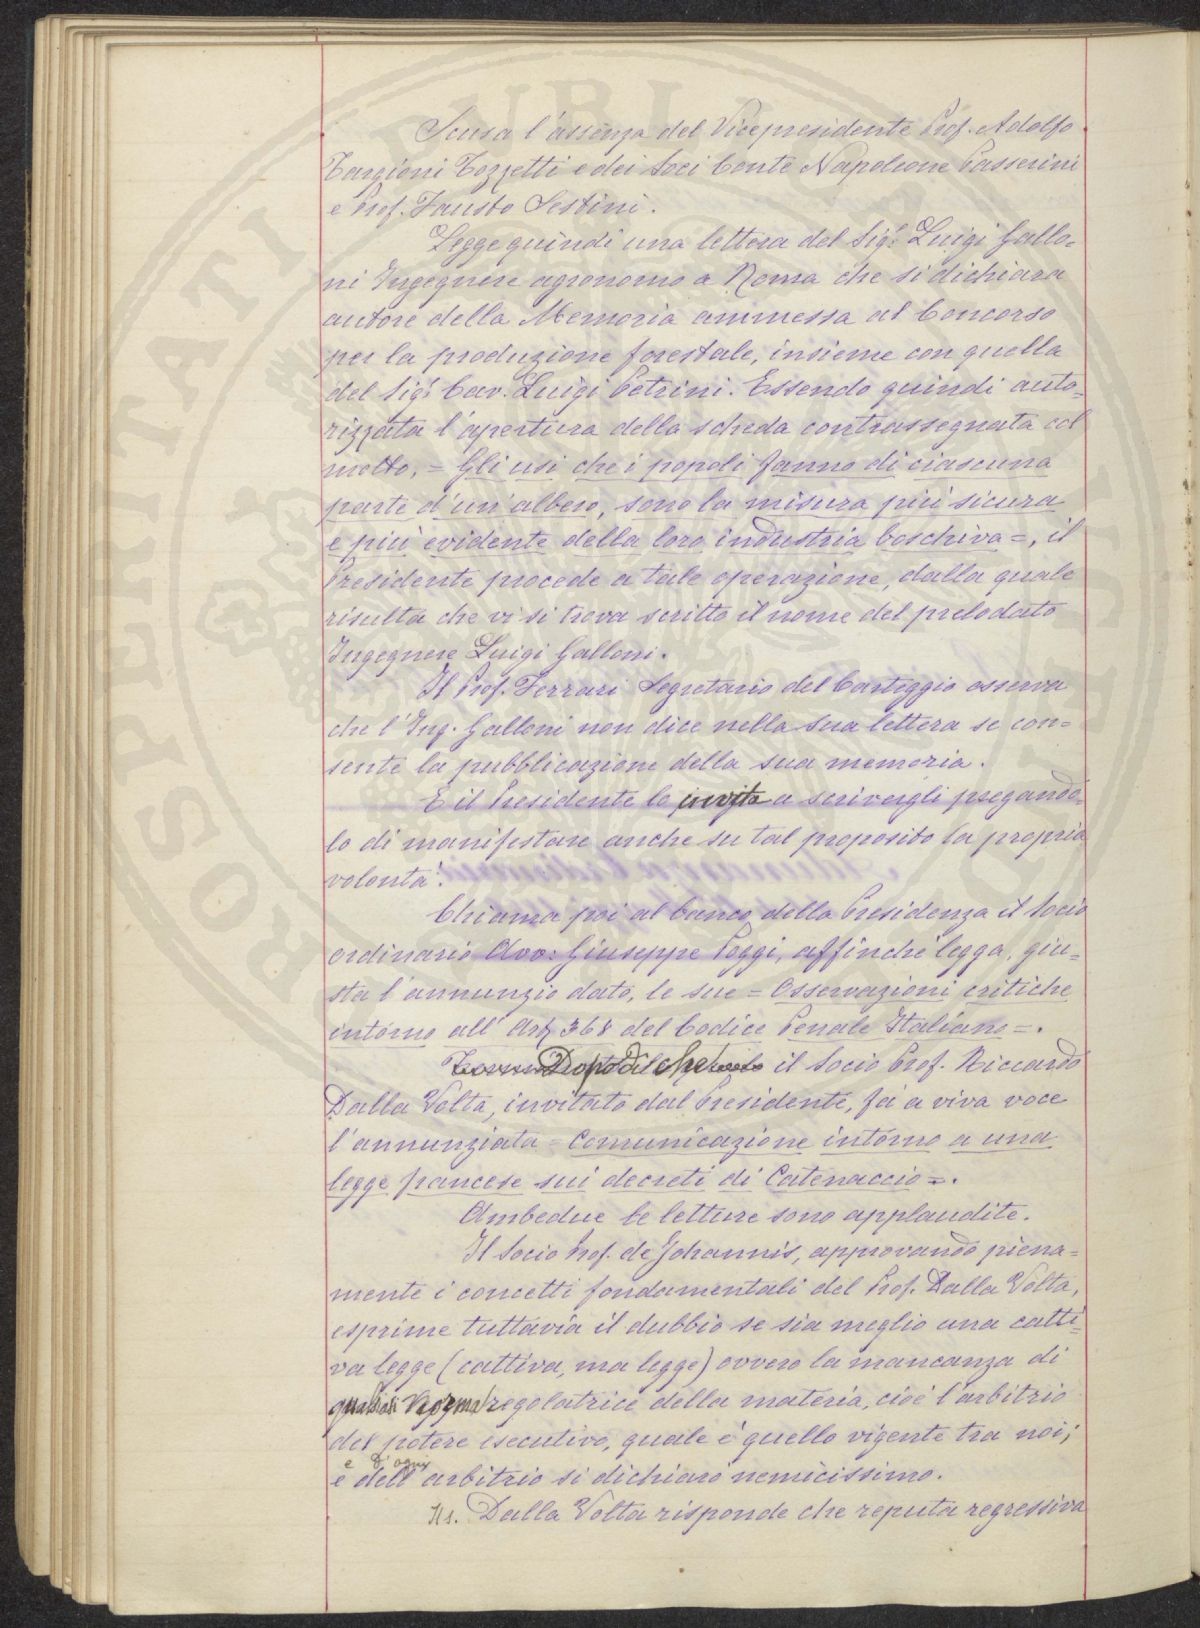 PROSPERITATI PUBLICAE AUGENDAE
Scusa l'assenza del Vicepresidente Prof. Adolfo
Targioni Tozzetti e dei Soci Conte Napoleone Passerini
e Prof. Fausto Sestini.
Legge quindi una lettera del Sigr. Luigi Gallo=
ni Ingegnere agronomo a Roma che si dichiara
autore della Memoria ammessa al Concorso
per la produzione forestale, insieme con quella
del Sigr. Cav. Luigi Petrini. Essendo quindi auto=
rizzata l'apertura della scheda contrassegnata col
motto, = Gli usi che i popoli fanno di ciascuna
parte d'un'albero, sono la misura più sicura
e più evidente della loro industria boschiva =, il
Presidente procede a tale operazione, dalla quale
risulta che vi si trova scritto il nome del prelodato
Ingegnere Luigi Galloni.
Il Prof. Ferrari Segretario del Carteggio osserva
che l'Ing. Galloni non dice nella sua lettera se con=
sente la pubblicazione della sua memoria.
E il Presidente lo invita a scrivergli pregando=
lo di manifestare anche su tal proposito la propria
volontà.
Chiama poi al banco della Presidenza il Socio
ordinario Avv: Giuseppe Poggi, affinchè legga, giu=
sta l'annunzio dato, le sue = Osservazioni critiche
intorno all'Art. 368 del Codice Penale Italiano =.
Dopo di che il Socio Prof. Riccardo
Dalla Volta, invitato dal Presidente, fà a viva voce
l'annunziata = Comunicazione intorno a una
legge francese sui decreti di Catenaccio =.
Ambedue le letture sono applaudite.
Il Socio Prof. de Johannis, approvando piena=
mente i concetti fondamentali del Prof. Dalla Volta,
esprime tuttavia il dubbio se sia meglio una catti=
va legge (cattiva, ma legge) ovvero la mancanza di
qualsiasi norma regolatrice della materia, cioè l'arbitrio
del potere esecutivo, quale è quello vigente tra noi;
e d'ogni
e dell'arbitrio si dichiarò nemicissimo.
Il S. Dalla Volta risponde che reputa regressiva